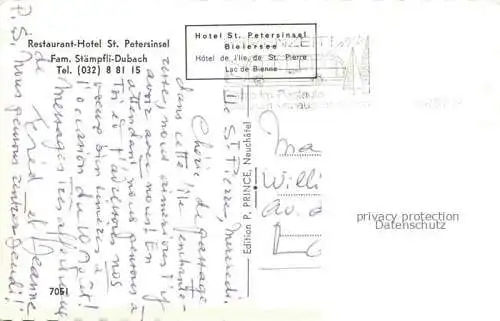 Restaurant-Hotel St. Petersinsel
Fam. Stämpfli-Dubach
Tel. (032) 8 81 15
Hotel St. Petersinsel
Bielersee
Hôtel de l'Ile, de St. Pierre
Lac de Bienne
Ile St Pierre, Mercredi.
Chérie, de passage
dans cette île enchante-
resse, nous aimerions t'y
avoir avec nous! En
attendant nous pensons à
Toi et t'adressons nos
vœux bien sincères à
l'occasion du 10 Août!
Messages très affectueux
de Fred et Jeanne
P.S. Nous pensons rentrer jeudi!
Edition P. PRINCE, Neuchâtel
7051
Willi
Av. d
privacy protection
Datenschutz